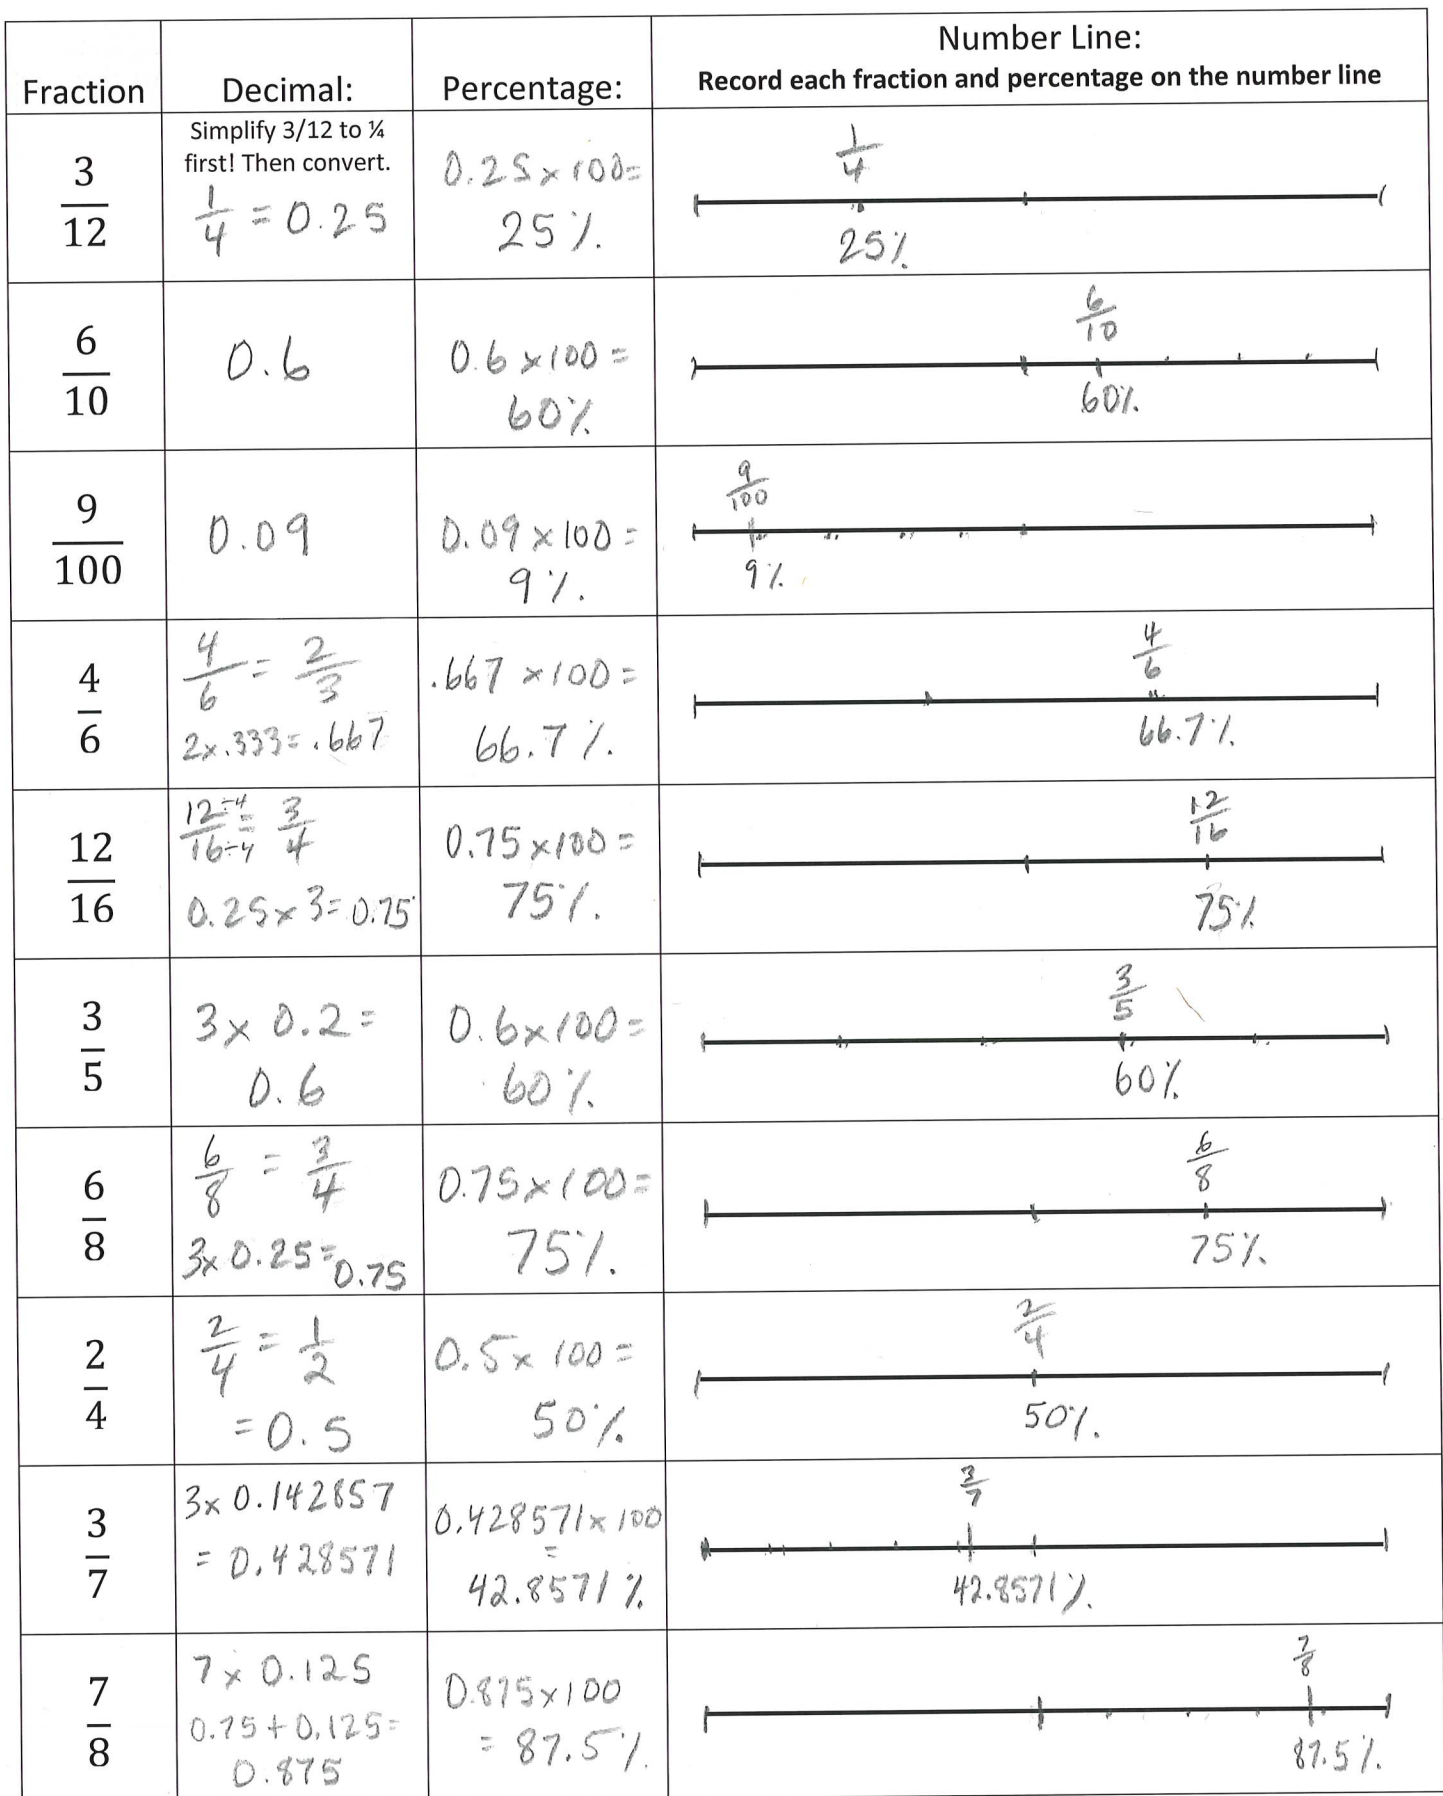 Fraction
Decimal:
Percentage:
Number Line:
Record each fraction and percentage on the number line
3/12
Simplify 3/12 to ¼
first! Then convert.
1/4 = 0.25
0.25 x 100=
25%
1/4
25%
6/10
0.6
0.6 x100 =
60%
6/10
60%
9/100
0.09
0.09 x100 =
9%
9/100
9%
4/6
4/6 = 2/3
2x.333=.667
.667 x100 =
66.7%
4/6
66.7%
12/16
12÷4/16÷4 = 3/4
0.25x3=0.75
0.75x100=
75%
12/16
75%
3/5
3x 0.2=
0.6
0.6x100=
60%
3/5
60%
6/8
6/8 = 3/4
3x0.25=0.75
0.75x100=
75%
6/8
75%
2/4
2/4 = 1/2
=0.5
0.5x 100=
50%
2/4
50%
3/7
3x 0.142857
= 0.428571
0.428571x100
=
42.8571%
3/7
42.8571%
7/8
7x 0.125
0.75+0.125=
0.875
0.875x100
= 87.5%
7/8
87.5%